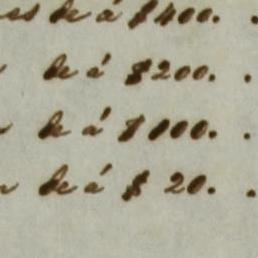 es de á $400.
de á $200.
de á $100.
de á $20.